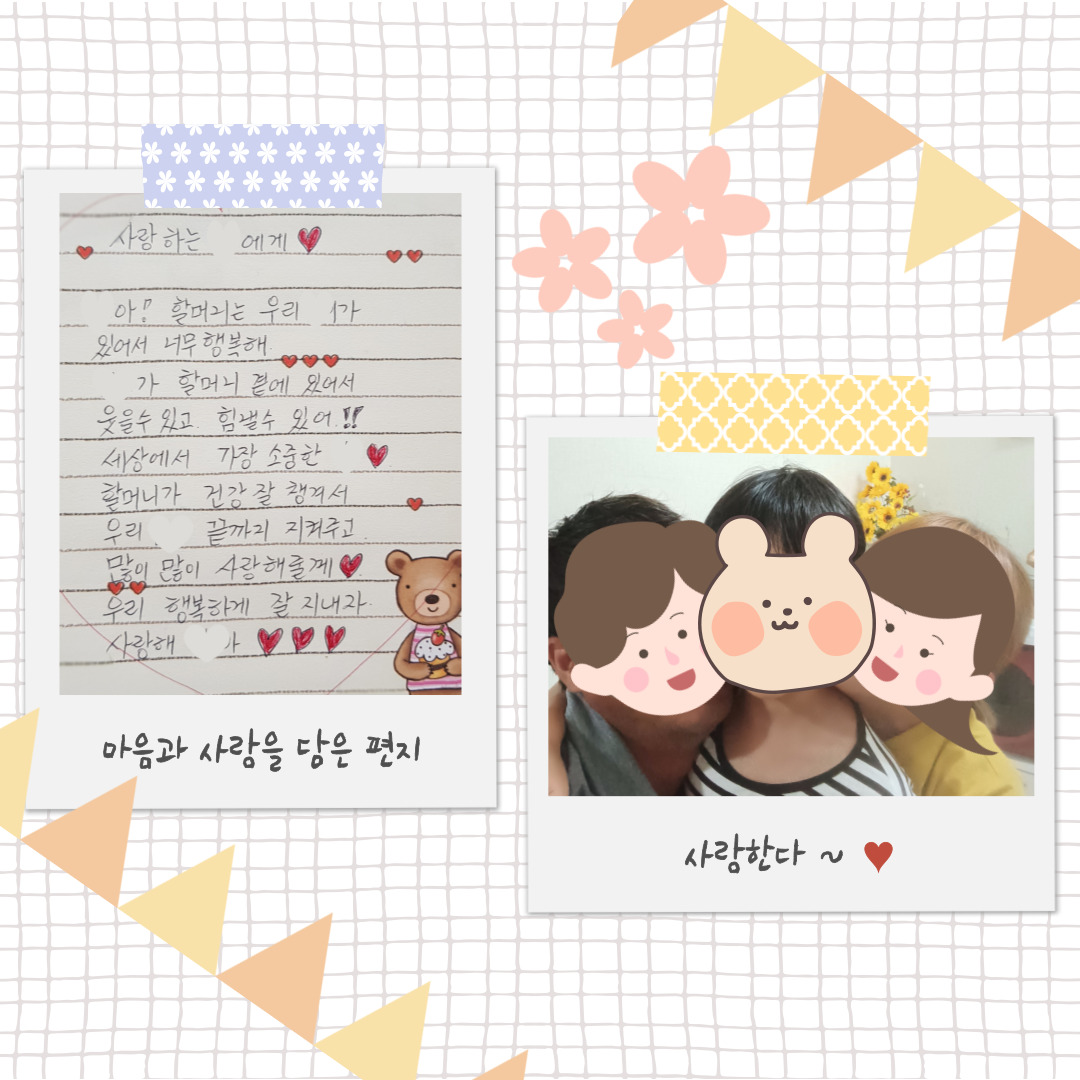 사랑하는 에게
아!! 할머니는 우리 가
있어서 너무 행복해.
가 할머니 곁에 있어서
웃을수 있고. 힘낼수 있어.!!
세상에서 가장 소중한
할머니가 건강 잘 챙겨서
우리 끝까지 지켜주고
많이 많이 사랑해줄께
우리 행복하게 잘 지내자.
사랑해 가
마음과 사랑을 담은 편지
사랑한다 ~